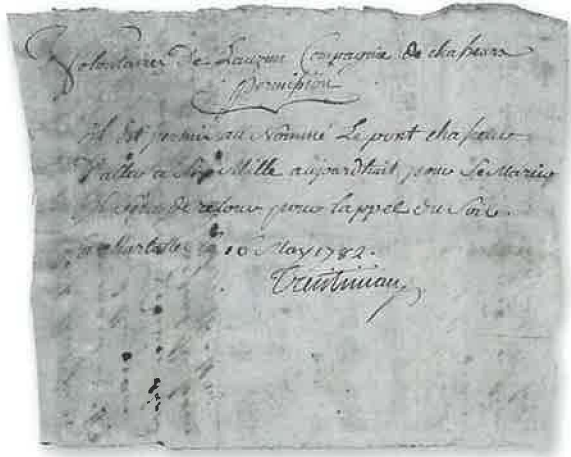 Volontaires de Lauzun Compagnie de chasseurs
permission
il est permis au nommé Le pont chasseur
D'aller à six Mille aujourdhuit pour Se Marier
il sera de retour pour lappel du Soir.
a charlotte 10 May 1782.
Trentinian